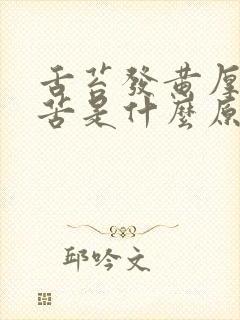 舌苔發黄厚
苦是什麼原
邱吟文